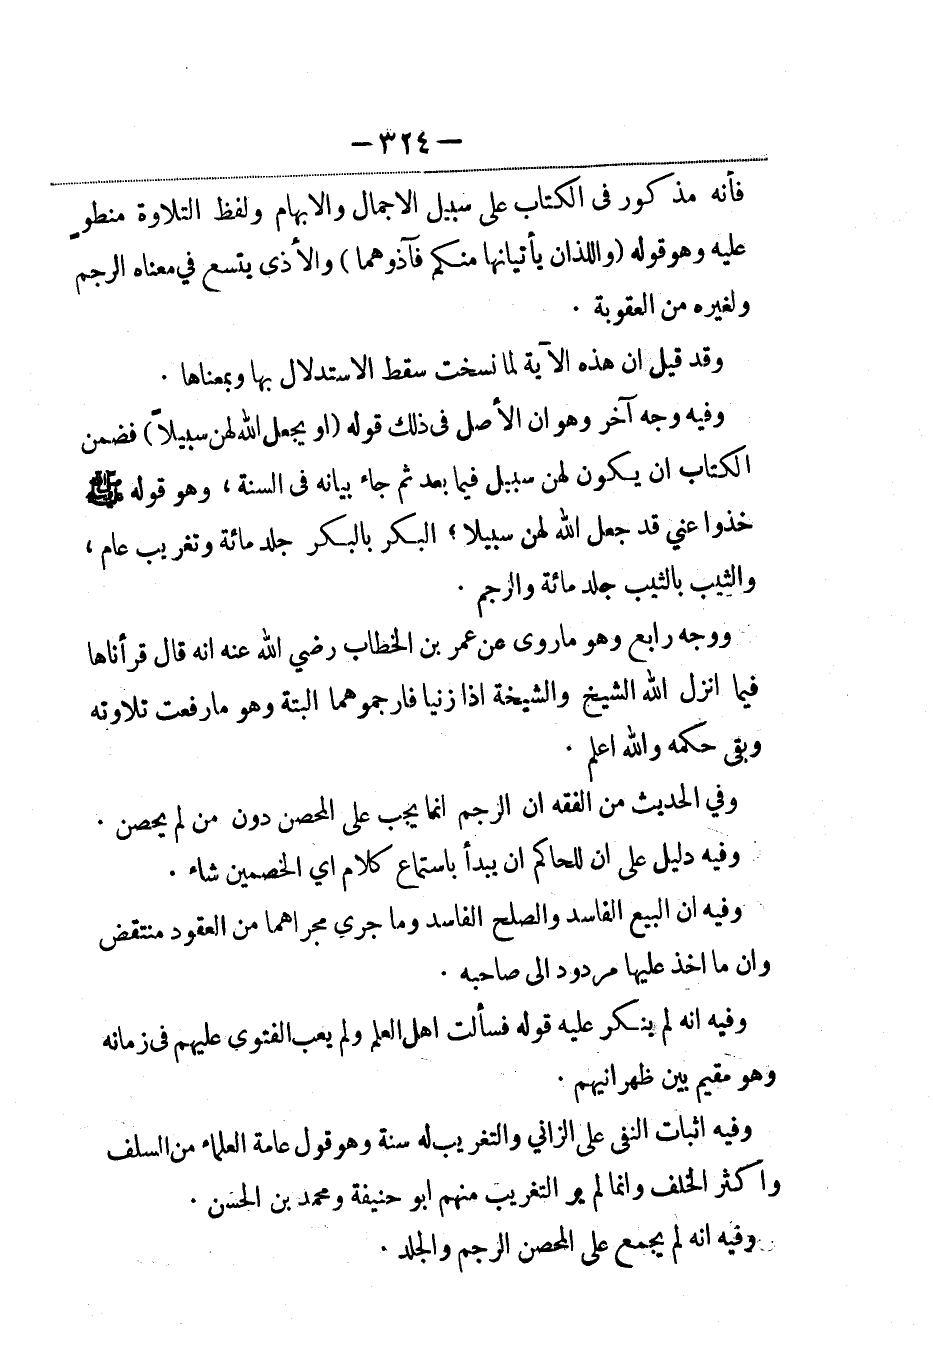 — ٣٢٤ —
فأنه مذكور فى الكتاب على سبيل الاجمال والابهام ولفظ التلاوة منطو
عليه وهو قوله (واللذان يأتيانها منكم فآذوهما) والأذى يتسع في معناه الرجم
ولغيره من العقوبة .
وقد قيل ان هذه الآية لما نسخت سقط الاستدلال بها وبمعناها .
وفيه وجه آخر وهو ان الأصل فى ذلك قوله (او يجعل الله لهن سبيلاً) فضمن
الكتاب ان يكون لهن سبيل فيما بعد ثم جاء بيانه فى السنة ، وهو قوله ﷺ
خذوا عني قد جعل الله لهن سبيلا ؛ البكر بالبكر جلد مائة وتغريب عام ،
والثيب بالثيب جلد مائة والرجم .
ووجه رابع وهو ماروى عن عمر بن الخطاب رضي الله عنه انه قال قرأناها
فيما انزل الله الشيخ والشيخة اذا زنيا فارجموهما البتة وهو مارفعت تلاوته
وبقى حكمه والله اعلم .
وفي الحديث من الفقه ان الرجم انما يجب على المحصن دون من لم يحصن .
وفيه دليل على ان للحاكم ان يبدأ باستماع كلام اي الخصمين شاء .
وفيه ان البيع الفاسد والصلح الفاسد وما جري مجراهما من العقود منتقض
وان ما اخذ عليها مردود الى صاحبه .
وفيه انه لم ينكر عليه قوله فسألت اهل العلم ولم يعب الفتوي عليهم فى زمانه
وهو مقيم بين ظهرانيهم .
وفيه اثبات النفى على الزاني والتغريب له سنة وهو قول عامة العلماء من السلف
واكثر الخلف وانما لم ير التغريب منهم ابو حنيفة ومحمد بن الحسن .
وفيه انه لم يجمع على المحصن الرجم والجلد .